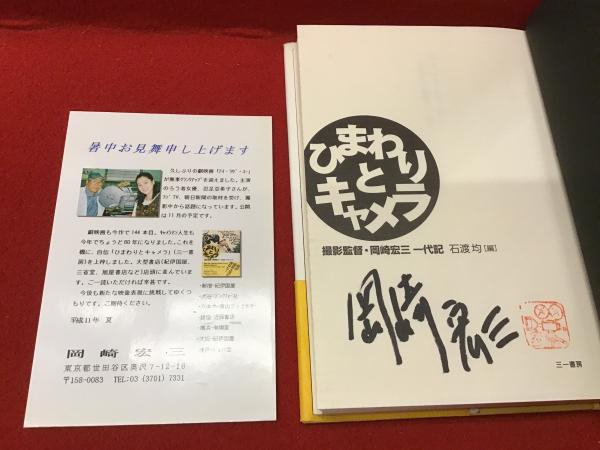 暑中お見舞申し上げます
久しぶりの劇映画「アイ・ラヴ・ユー」
が無事クランクアップを迎えました。主演
のろう者女優、忍足亜希子さんが、
フジTV、朝日新聞の取材を受け、撮
影中から話題になっています。公開
は11月の予定です。
劇映画も今作で144本目。キャメラマン人生も
今年でちょうど60年になりました。これを
機に、自伝「ひまわりとキャメラ」(三一書
房)を上梓しました。大型書店(紀伊国屋、
三省堂、旭屋書店など)店頭に並んでいま
す。ご一読いただければ幸甚です。
今後も新たな映像表現に挑戦してゆくつ
もりです。ご期待ください。
平成11年 夏
岡崎宏三
東京都世田谷区奥沢7-12-18
〒158-0083 TEL:03 (3701) 7331
ひまわり
と
キャメラ
撮影監督・岡崎宏三 一代記 石渡均[編]
岡崎宏三
三一書房